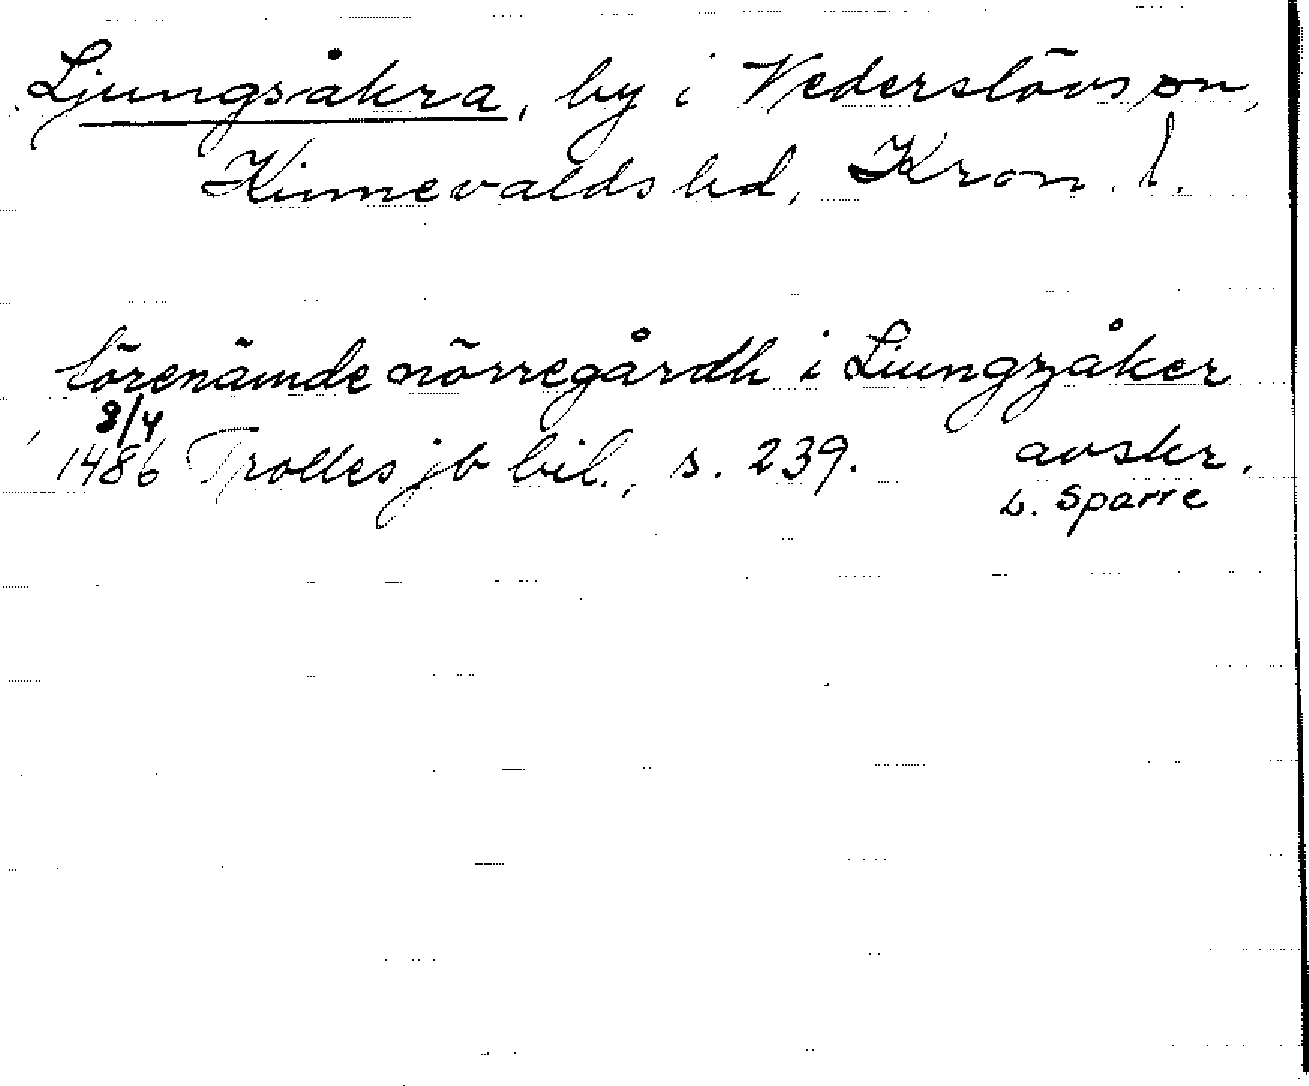 Ljungsåkra, by i Vederslövs sn,
Kinnevalds hd, Kron. l.
förenämde nörregårdh i Liungzåker
8/4
1486 Trolles jb bil., s. 239. avskr.
L. Sparre